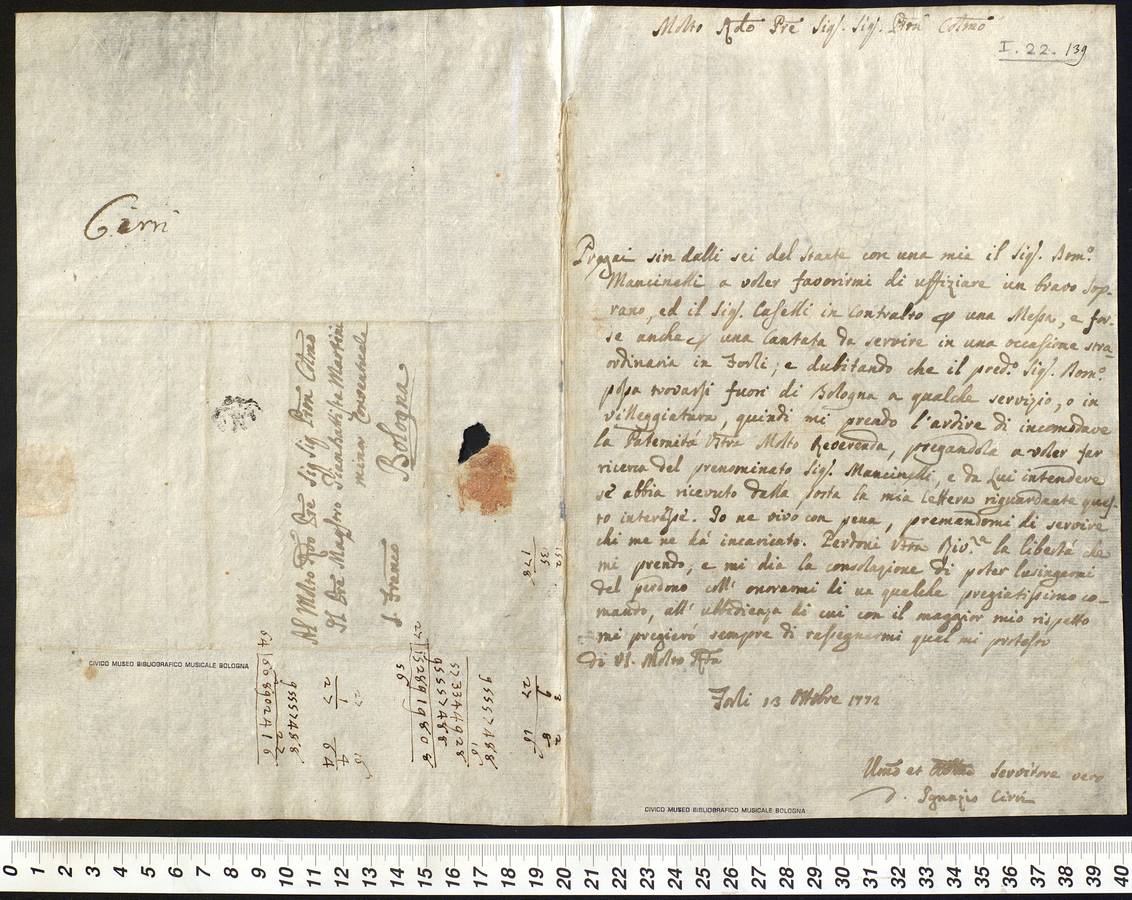 Molto Rdo Pre Sigr. Sigr. Pron Colmo
I. 22. 139
Pregai sin dalli sei del stante con una mia il Sigr. Dom.o
Mancinelli a voler favorirmi di uffiziare un bravo Sop-
rano, ed il Sigr. Caselli in Contralto una Messa, e for-
se anche una Cantata da servire in una occassione stra-
ordinaria in Forlì; e dubitando che il pred.o Sigr. Dom.o
possa trovarsi fuori di Bologna a qualche servizio, o in
villeggiatura, quindi mi prendo l'ardire di incomodare
la Paternità Vtra Molto Reverenda, pregandola a voler far
ricerca del prenominato Sigr. Mancinelli, e da Lui intendere
se abbia ricevuto dalla Posta la mia lettera riguardante ques-
to interesse. Io ne vivo con pena, premandomi di servire
chi me ne há incaricato. Perdoni Vtra Riv.za la libertá che
mi prendo, e mi dia la consolazione di poter lusingarmi
del perdono coll' onorarmi di un qualche pregiatissimo co-
mando, all' ubbidienza di cui con il maggior mio rispetto
mi pregieró sempre di rassegnarmi qual mi protesto
di VS. Molto Rda
Forlì 13 Ottobre 1772
Umo et Servitore vero
D. Ignazio Cirri
CIVICO MUSEO BIBLIOGRAFICO MUSICALE BOLOGNA
Cirri
Al Molto Rdo Pre Sig Sig Pron Colmo
Il Pre Maestro Gianbatista Martini
minor Conventuale
Bologna
S. Franco
CIVICO MUSEO BIBLIOGRAFICO MUSICALE BOLOGNA
152
35
178
27
95557488
16
573344928
95557488
1528919808
27
16
27
64
95557488
27
64
0 1 2 3 4 5 6 7 8 9 10 11 12 13 14 15 16 17 18 19 20 21 22 23 24 25 26 27 28 29 30 31 32 33 34 35 36 37 38 39 40